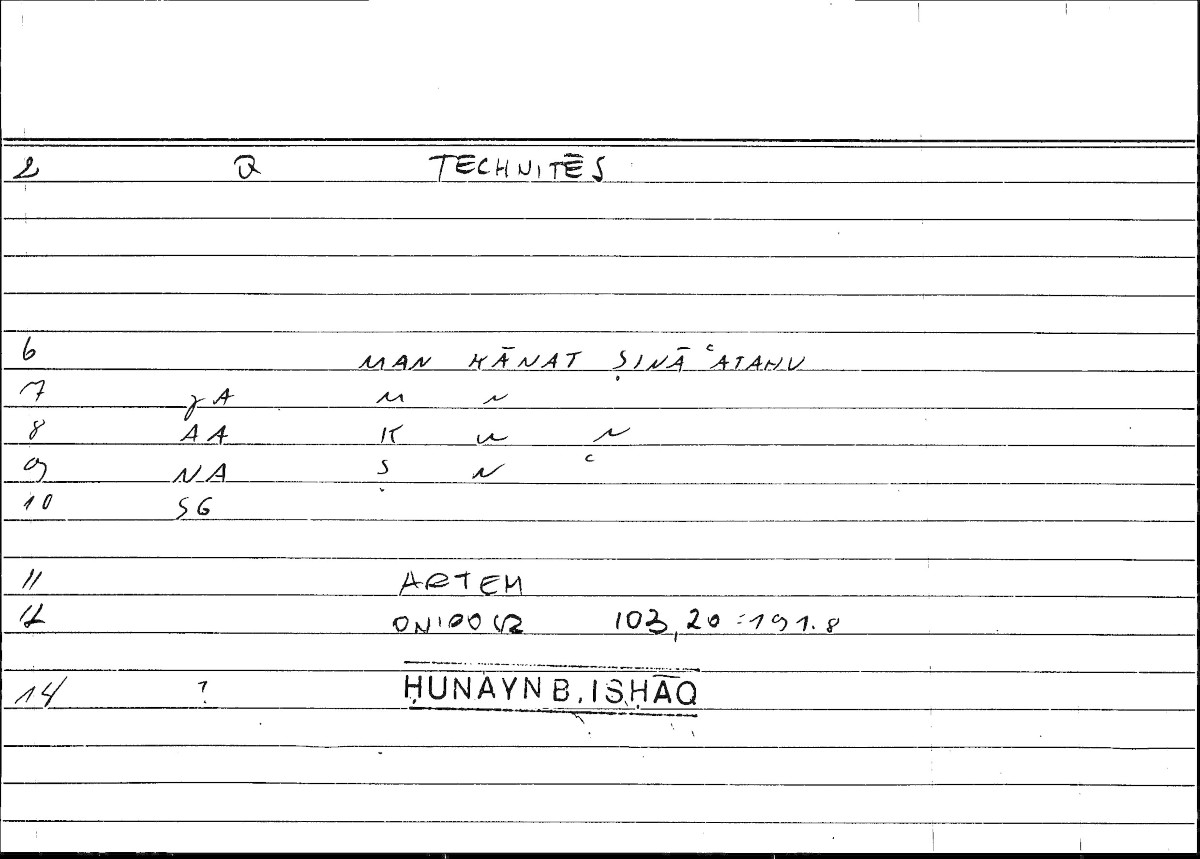 2 Q TECHNITĒS
6 MAN KĀNAT ṢINĀʿATAHU
7 γA M N
8 AA K W N
9 NA Ṣ N ʿ
10 SG
11 ARTEM
12 103,20 = 191.8
14 ? ḤUNAYN B. ISḤĀQ